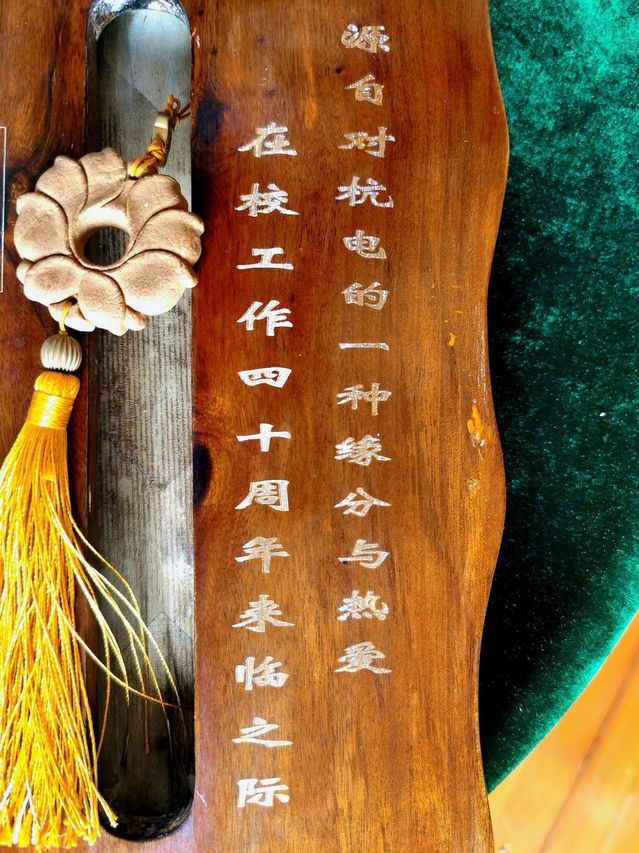 源自对杭电的一种缘分与热爱
在校工作四十周年来临之际